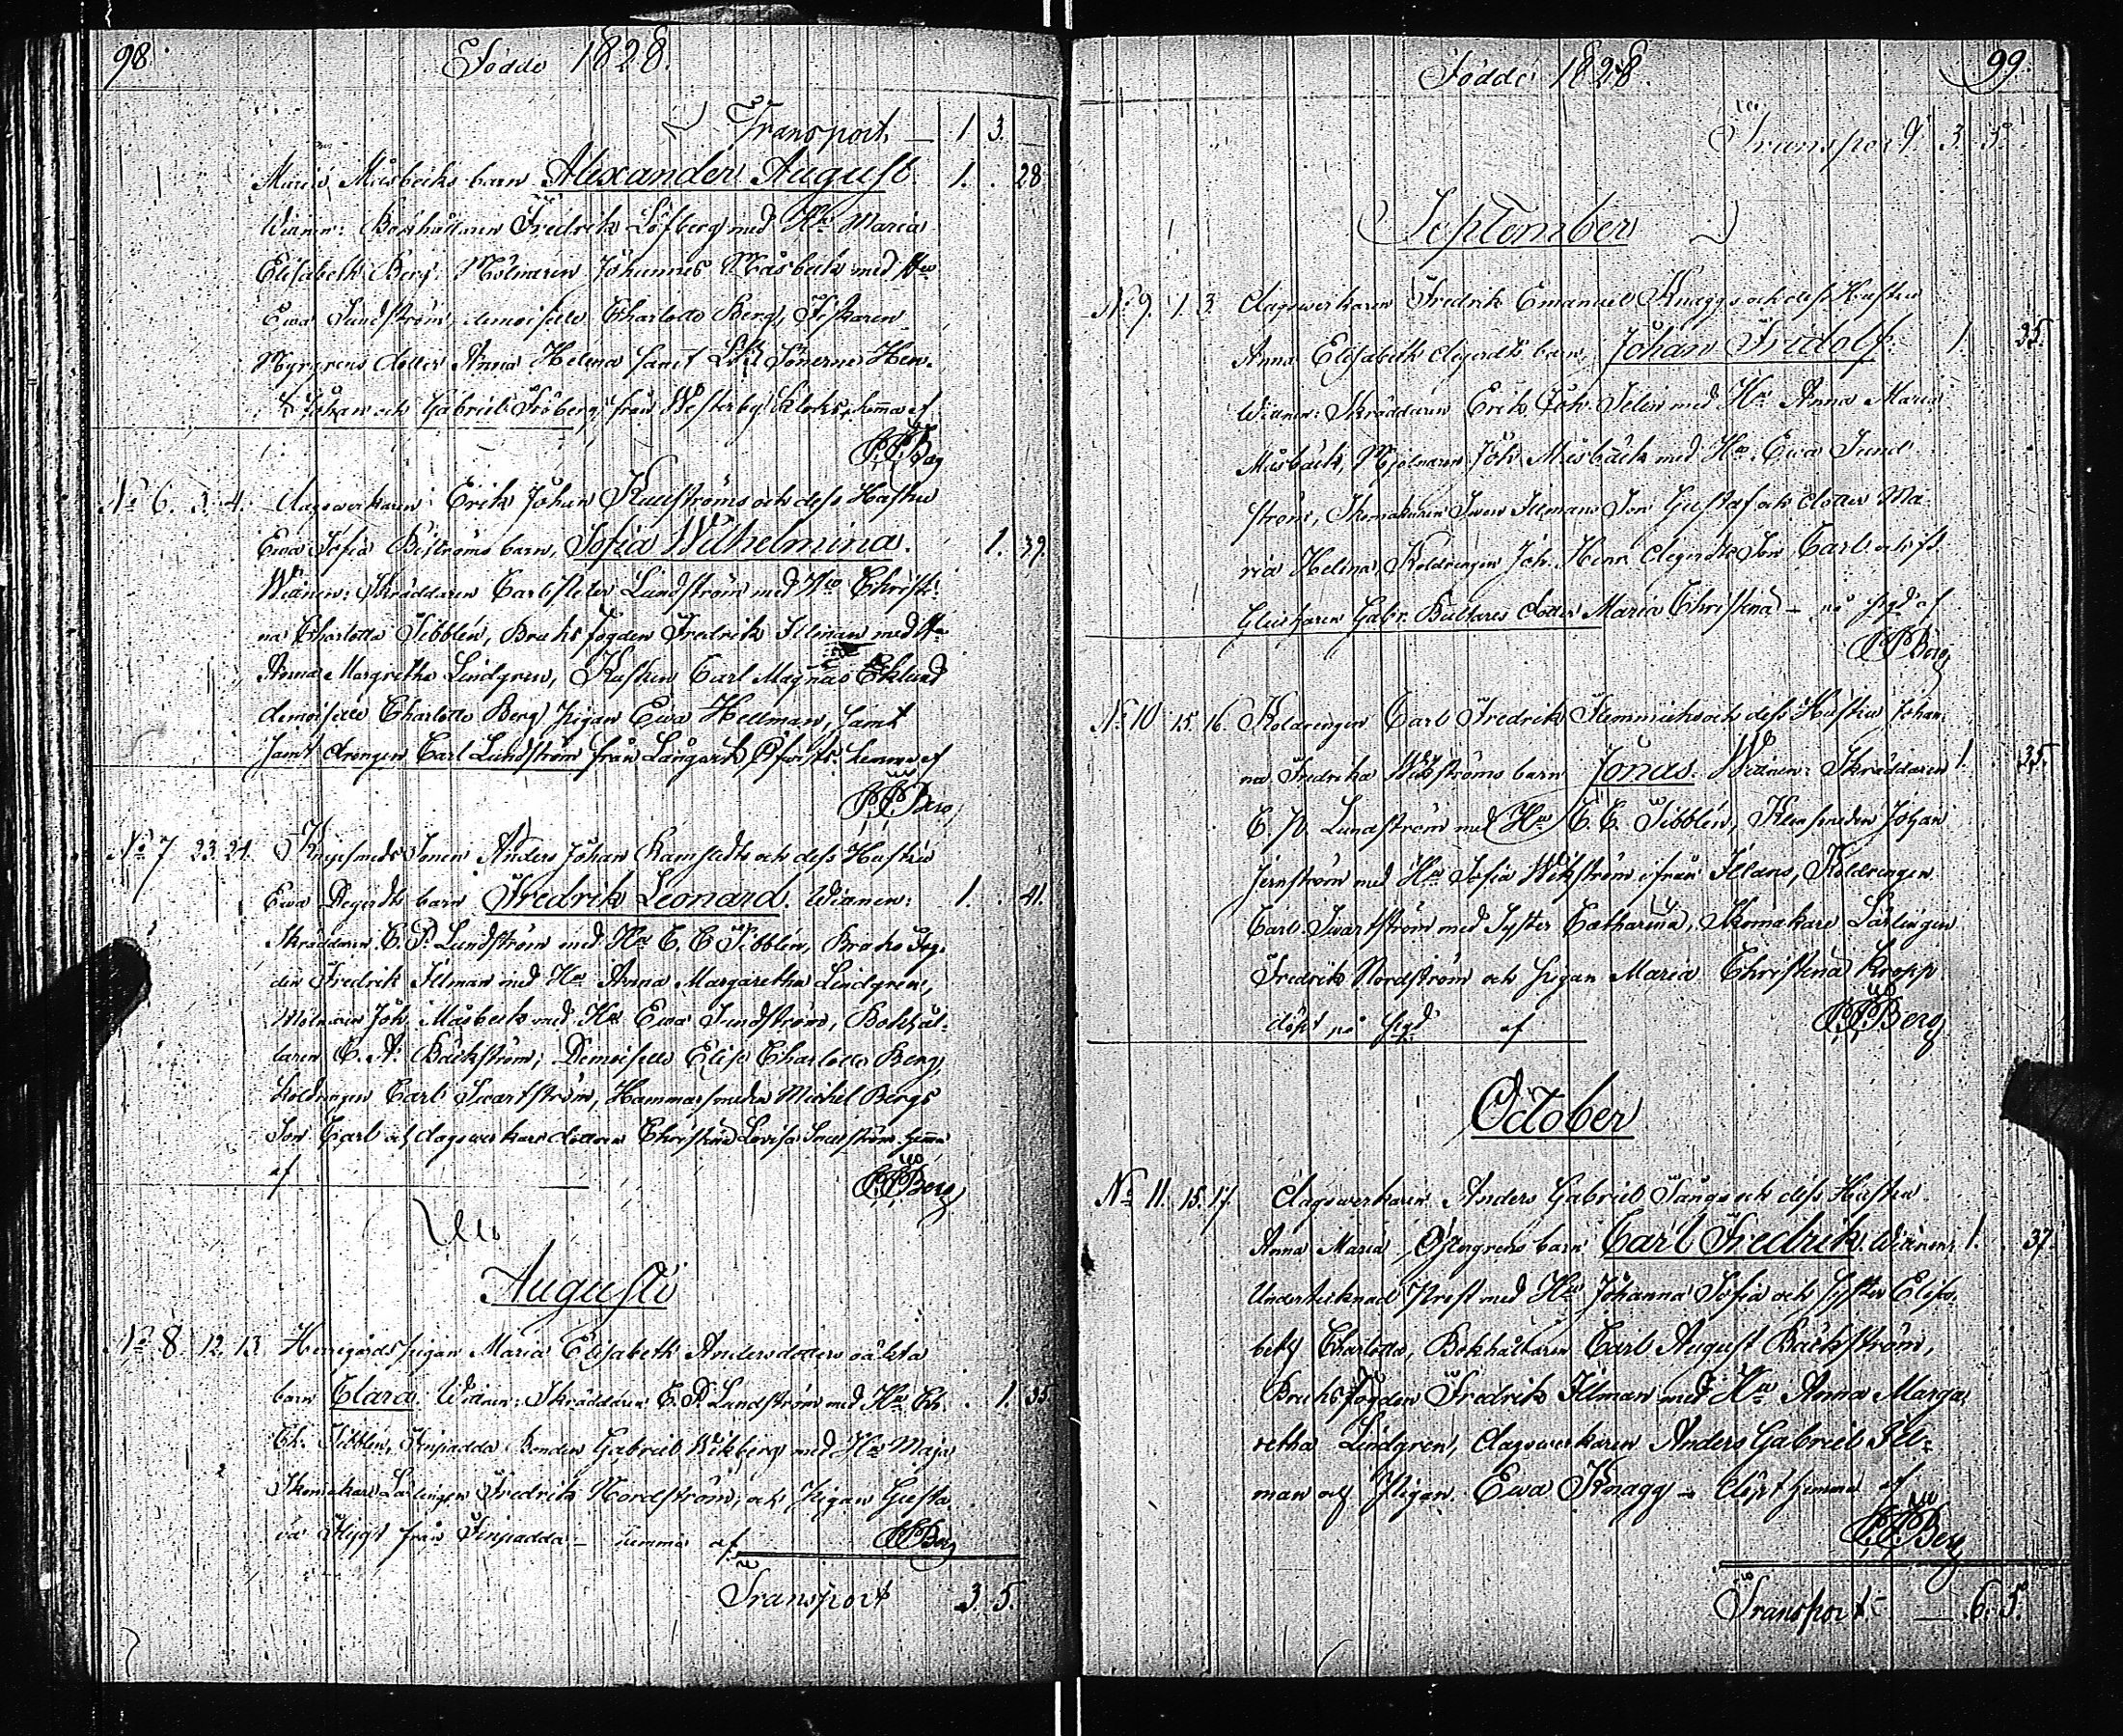 98. Födde 1828.
Transport. — 1 3.
Maria Måsbecks barn Alexander August. 1. . 28
Wittnen: Bokhållaren Fredrik Löfberg med Hu Maria
Elisabeth Berg, Mölnaren Johannes Måsbeck med Hu
Ewa Sundström, demoiselle Charlotta Berg, Fiskaren
Nygrens dotter Anna Helena samt Söner Hen.
& Johan och Gabriel Fröberg från Westerby hemma af
P.P. Berg
No 6. 3. 4. dagswerkaren Erik Johan Kullströms och dess Hustru
Ewa Sofia Biströms barn, Sofia Wilhelmina. 1. 39.
Wittnen: Skräddaren Carl Peter Lundström med Hu Christi-
na Charlotta Tibblén, Bruks fogden Fredrik Illman med Hu
Anna Margretha Lindgren, Carl Magnus Eklund
demoiselle Charlotta Berg, pigan Ewa Hellman, samt
samt drengen Carl Lundström från Långark hemma af
P.P. Berg
No 7 23. 24. Knipsmeds Sonen Anders Johan Ramstedts och dess Hustru
Ewa Degerdts barn Fredrik Leonard. Wittnen: 1. . 41.
Skräddaren C. P. Lundström med Hu C. C. Tibblén, Bruks Fog.
den Fredrik Illman med Hu Anna Margaretha Lindgren,
Mölnaren Joh. Måsbeck med Hu Ewa Sundström, Bokhål-
laren C. A. Bäckström, Demoiselle Elis. Charlotta Berg,
Koldrengen Carl Swartström, Hammarsmeden Michel Bergs
Son Carl och dagswerkare dottren Christina Lovisa hemma
af P.P. Berg
Augusti
No 8. 12. 13. Herregårds pigan Maria Elisabeth Andersdotters oäkta
barn Clara. Wittnen: Skräddaren C. P. Lundström med Hu Ch. . 1. 35
Ch. Tibblén, Finpadda Bonden Gabriel Wikberg med Hu Maja
Skomakare Lärlingen Fredrik Nordström, och Pigan Gusta-
va Flygt från Finpadda — hemma af P.P. Berg
Transport 3. 5.
Födde 1828. 99.
Transport. 3. 5.
September
No 9. 1. 3. dagswerkaren Fredrik Emanuel Knaggs och dess Hustru
Anna Elisabeth degerdts barn, Johan Fridolf. 1. 35.
Wittnen: Skräddaren Erik Joh. Selin med Hu Anna Maria
Måsbäck, Mjölnaren Joh. Måsbäck med Hu Ewa Sund-
ström, Skomakaren Swen Illmans Son Gustaf och dotter Ma-
ria Helena, Koldrengen Joh. Henr. degerdts Son Carl och
Gabr. dotter Maria Christina — på af
P.P. Berg
No 10 15. 16. Koldrengen Carl Fredrik Flemmichs och dess Hustru Johan-
na Fredrika Wikströms barn Jonas. Wittnen: Skräddaren 1. 35.
C. P. Lundström med Hu C. C. Tibblén, Klensmeden Johan
Jernström med Hu Sofia Wikström ifrån Illans, Koldrengen
Carl Swartström med Syster Catharina, Skomakare Lärlingen
Fredrik Nordström och pigan Maria Christina Kropp
döpt på af P.P. Berg
October
No 11. 15. 17. dagswerkaren Anders Gabriel Långs och dess Hustru
Anna Maria Östergrens barn Carl Fredrik. Wittnen: 1. . 37.
Undertecknad Prest med Hu Johanna Sofia och Syster Elisa-
beth Charlotta, Bokhållaren Carl August Bäckström,
Bruksfogden Fredrik Illman med Hu Anna Marga-
retha Lindgren, dagswerkaren Anders Gabriel Ill-
man och Pigan Ewa Knagg — döpt hemma af
P.P. Berg
Transport — 6. 5.